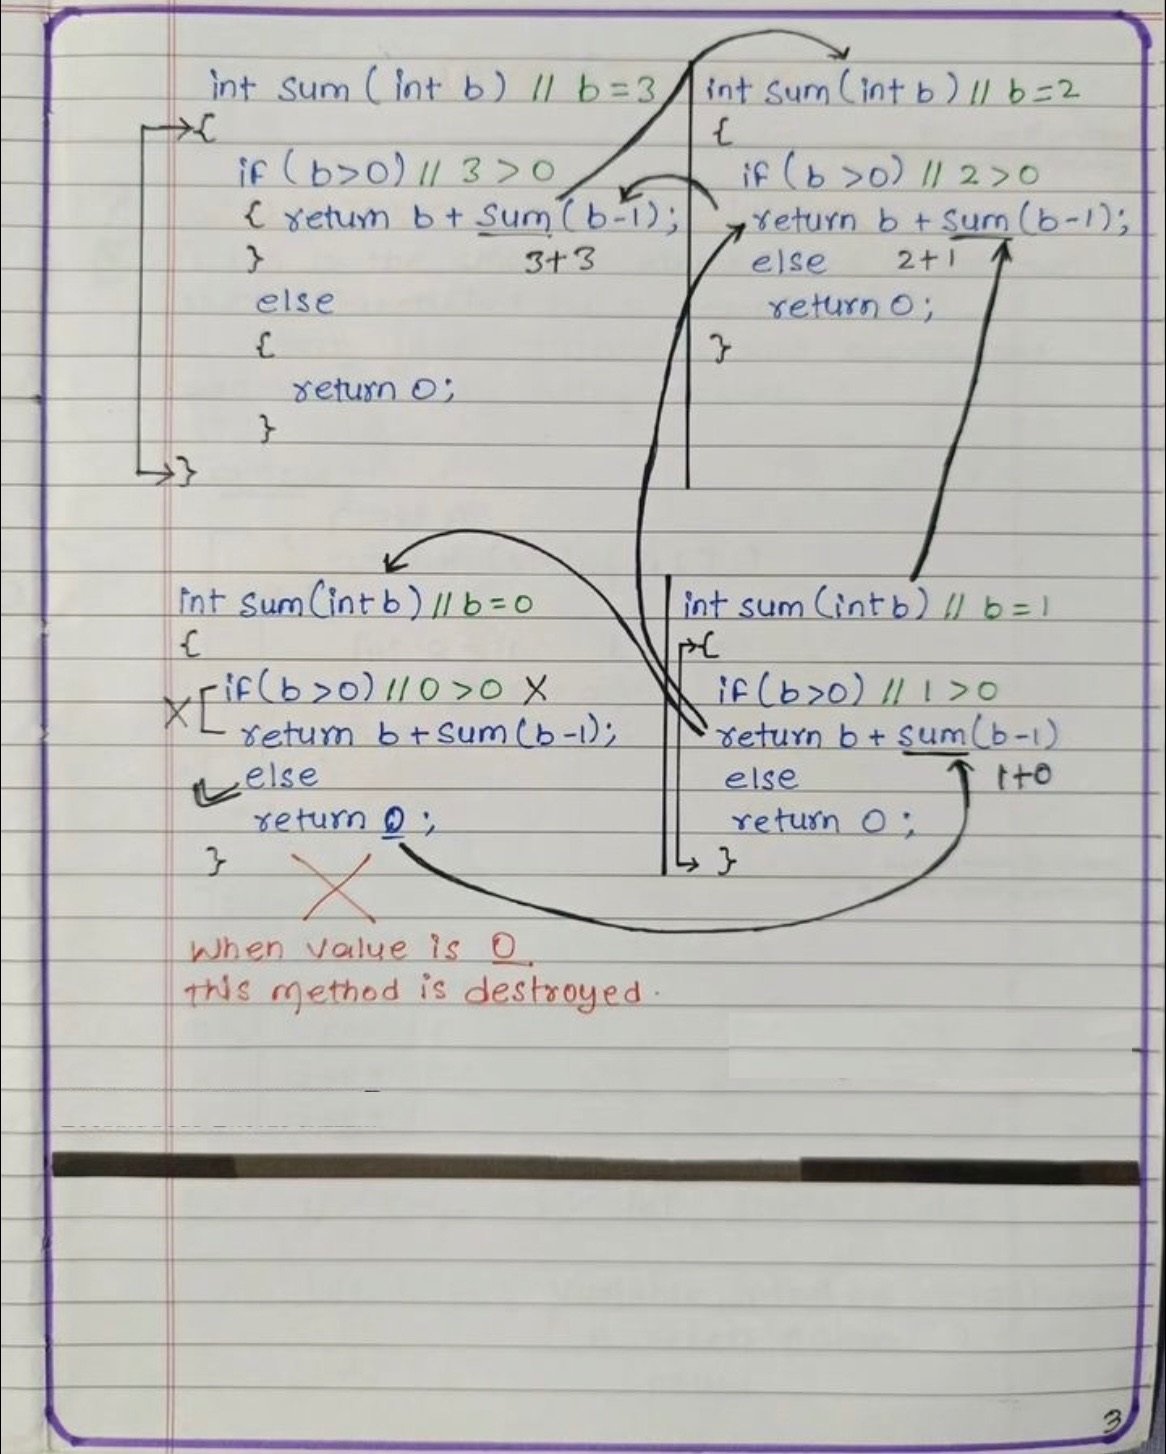 int sum (int b) // b=3
{
if (b>0) // 3>0
{ return b + sum (b-1);
3+3
}
else
{
return 0;
}
}
int sum (int b) // b=2
{
if (b>0) // 2>0
return b + sum (b-1);
else 2+1
return 0;
}
int sum (int b) // b=0
{
X if (b>0) // 0>0 X
return b + sum (b-1);
else
return 0;
}
When value is 0.
this method is destroyed.
int sum (int b) // b=1
{
if (b>0) // 1>0
return b + sum (b-1)
else 1+0
return 0;
}
3